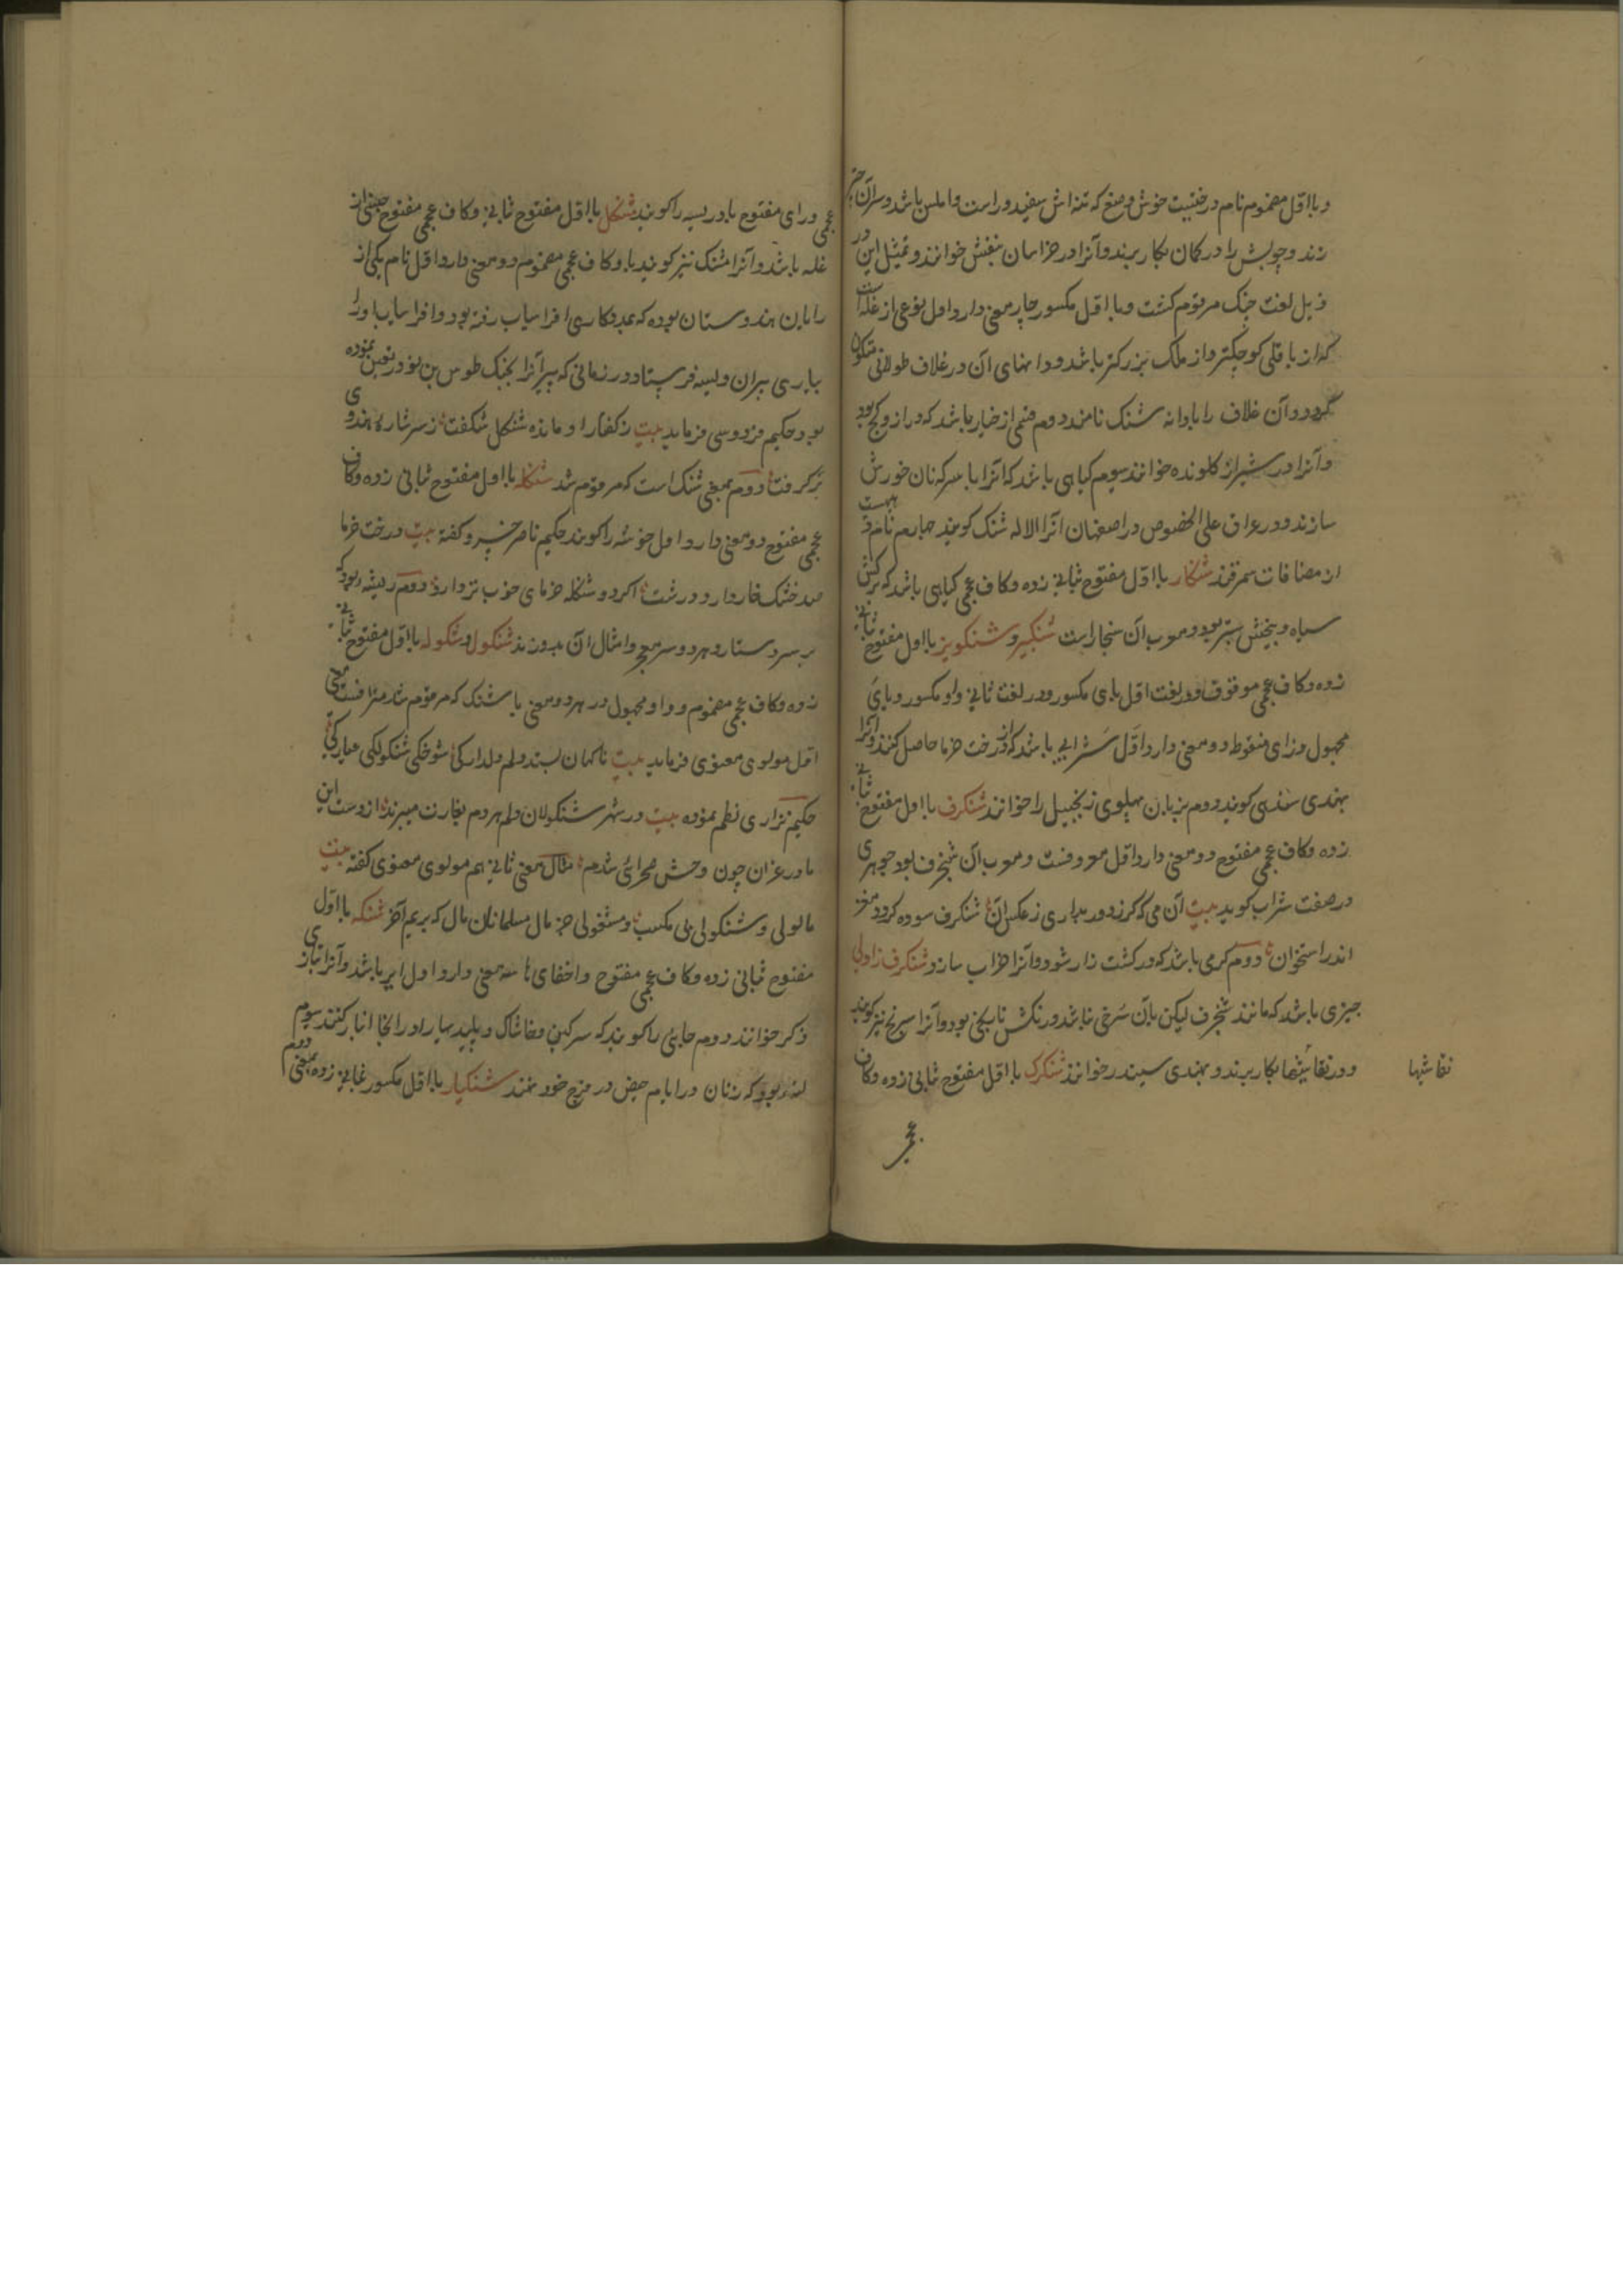 و با اول مضموم نام درختیست خوش وضع که تنه اش سفید و راست و املس باشد و سرآن چتر
زند و چوبش را در کمان بکار برند و آنرا در خراسان بنفش خوانند و تمثیل این در
ذیل لغت چنک مرقوم کشت و با اول مکسور چار معنی دارد اول نوعی از غله است
که از باقلی کوچکتر و از ملک بزرکتر باشد و دانهای آن در غلاف طولانی متکون
گردد و آن غلاف را با دانه شنک نامند دوم قسمی از خیار باشد که دراز و کج بود
و آنرا در شیراز کلونده خوانند سیوم کیاهی باشد که آنرا با سرکه نان خورش
سازند و در عراق علی الخصوص در اصفهان آنرا الاله شنک کویند چهارم نام دهیست
از مضافات سمرقند شنکار با اول مفتوح بثانی زده و کاف عجمی کیاهی باشد که برکش
سیاه و بیخش ستبر بود و معرب آن سنجار است شنکبیر و شنکویز با اول مفتوح بثانی
زده و کاف عجمی موقوف و در لغت اول بای مکسور و در لغت ثانی واو مکسور و یای
مجهول و زای منقوطه دو معنی دارد اول شرابی باشد که از درخت خرما حاصل کنند و آنرا
بهندی سندهی کویند دوم بزبان پهلوی زنجبیل را خوانند شنکرف با اول مفتوح بثانی
زده و کاف عجمی مفتوح دو معنی دارد اول معروفست و معرب آن شنجرف بود جوهری
در صفت شراب کوید بیت آن می که کرز دور بداری ز عکس آن شنکرف سوده کردد مغز
اندر استخوان دوم کرمی باشد که در کشت زار شود و آنرا خراب سازد شنکرف زاولی
چیزی باشد که مانند شنجرف لیکن بآن سرخی نباشد و رنکش نارنجی بود و آنرا سرنج نیز کویند
و در نقاشیها بکار برند و بهندی سیندر خوانند شنکرک با اول مفتوح بثانی زده و کاف
نقاشیها
عجمی
عجمی و رای مفتوح بادریسه را کویند شنکل با اول مفتوح ثانی و کاف عجمی مفتوح جنسی از
غله باشد و آنرا مشنک نیز کویند با و کاف عجمی مضموم دو معنی دارد اول نام یکی از
رایان هندوستان بوده که بمددکاری افراسیاب رفته بود و افراسیاب او را
بیاری پیران ویسه فرستاد در زمانی که پیرانرا بجنک طوس بن نوذر تعین نموده
بود حکیم فردوسی فرماید بیت ز کفتار او مانده شنکل شکفت ز سر شاره هندوی
برکرفت دوم بمعنی شنک است که مرقوم شد شنکله با اول مفتوح بثانی زده و کاف
عجمی مفتوح دو معنی دارد اول خوشه را کویند حکیم ناصر خسرو کفته بیت درخت خرما
صد خشک خار دارد و درشت اکر دو شنکله خرمای خوب تر دارد دوم ریشه بود که
بر سر دستار و بهرد و سر پیچ و امثال آن بدوزند شنکول و شنکوله با اول مفتوح بثانی
زده و کاف عجمی مضموم و واو مجهول در هر دو معنی با شنک که مرقوم شد مترادفست معنی
اول مولوی معنوی فرماید بیت ناکهان بستد دلم دلدارکی شوخکی شنکولکی عیارکی
حکیم نزاری نظم نموده بیت در شهر شنکولان دلم هردم بغارت میبرند از دست این
مادر غران چون وحش صحرائی شدم مثال معنی ثانی هم مولوی معنوی کفته بیت
مالولی و شنکولی بی مکسب و مشغولی جز مال مسلمانان مال که بریم آخر شنکه با اول
مفتوح بثانی زده و کاف عجمی مفتوح و اخفای ها سه معنی دارد اول ایر باشد و آنرا بتازی
ذکر خوانند دوم جائی را کویند که سرکین و خاشاک و پلیدیها را در آنجا انبار کنند سیوم
لته بود که زنان در ایام حیض در فرج خود نهند شنکیار با اول مکسور بثانی زده بمعنی دوم